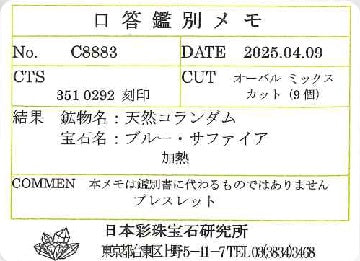 口答鑑別メモ
No. C8883 DATE 2025.04.09
CTS CUT オーバル ミックス
351 0292 刻印 カット (9個)
結果 鉱物名：天然コランダム
宝石名：ブルー・サファイア
加熱
COMMEN 本メモは鑑別書に代わるものではありません
ブレスレット
日本彩珠宝石研究所
東京都台東区上野5-11-7 TEL 03(3834)3468